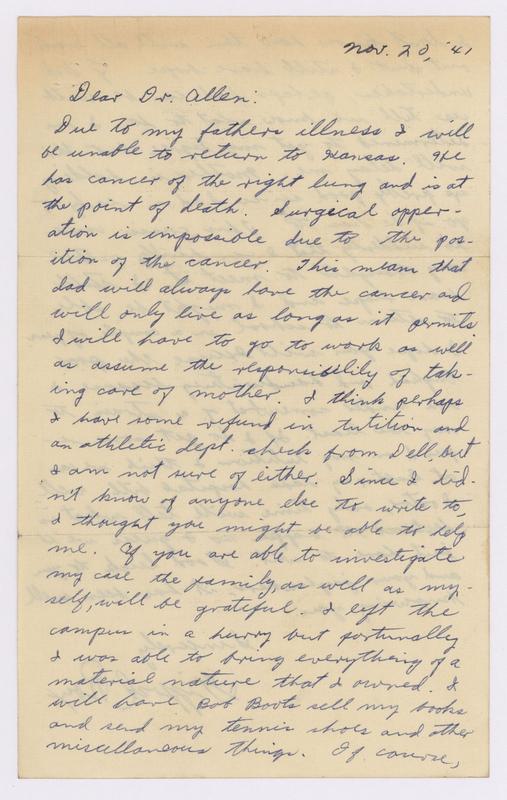 Nov. 20, '41
Dear Dr. Allen:
Due to my fathers illness I will
be unable to return to Kansas. He
has cancer of the right lung and is at
the point of death. Surgical opper-
ation is impossible due to the pos-
ition of the cancer. This means that
dad will always have the cancer and
will only live as long as it permits.
I will have to go to work as well
as assume the responsibility of tak-
ing care of mother. I think perhaps
I have some refund in tutition and
an athletic dept. check from Dell, but
I am not sure of either. Since I did-
n't know of anyone else to write to,
I thought you might be able to help
me. If you are able to investigate
my case the family, as well as my-
self, will be grateful. I left the
campus in a hurry but fortunally
I was able to bring everything of a
material nature that I owned. I
will have Bob Boots sell my books
and send my tennis shoes and other
miscellaneous things. Of course,